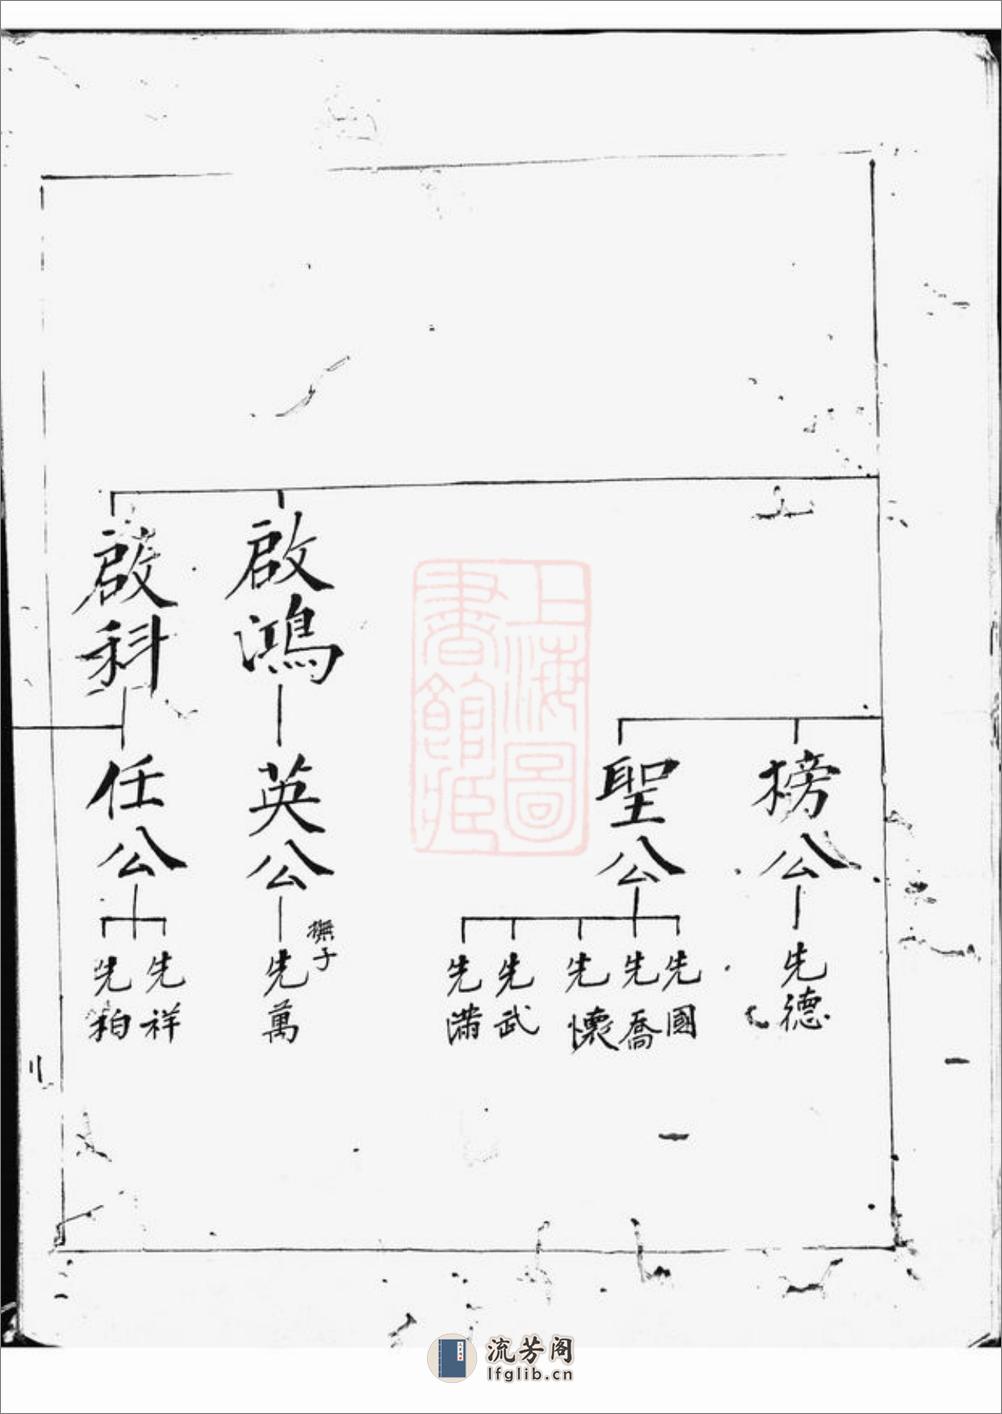 榜公
先德
聖公
先國
先喬
先懷
先武
先滿
啟鴻
英公
撫子
先萬
啟科
任公
先祥
先柏
上海圖
書館藏
流芳阁
lfglib.cn